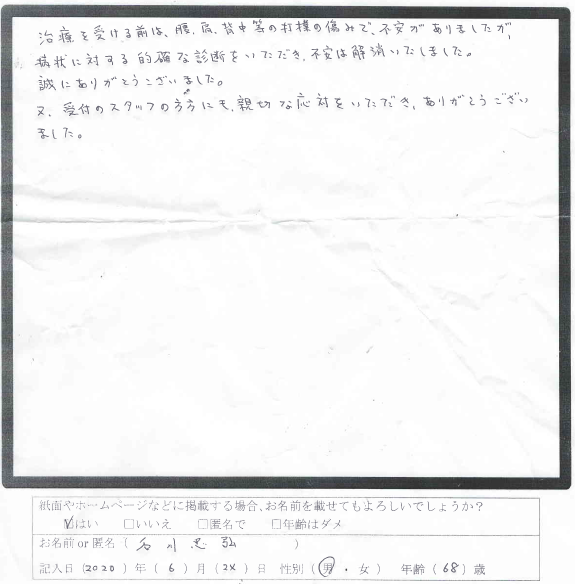 治療を受ける前は、腰、肩、背中等の打撲の傷みで、不安がありましたが、
病状に対する的確な診断をいただき、不安は解消いたしました。
誠にありがとうございました。
又、受付のスタッフの方々にも、親切な応対をいただき、ありがとうござい
ました。
紙面やホームページなどに掲載する場合、お名前を載せてもよろしいでしょうか?
☑はい □いいえ □匿名で □年齢はダメ
お名前or匿名( 川 忠弘 )
記入日(2020)年(6)月(2)日 性別(男・女) 年齢(68)歳